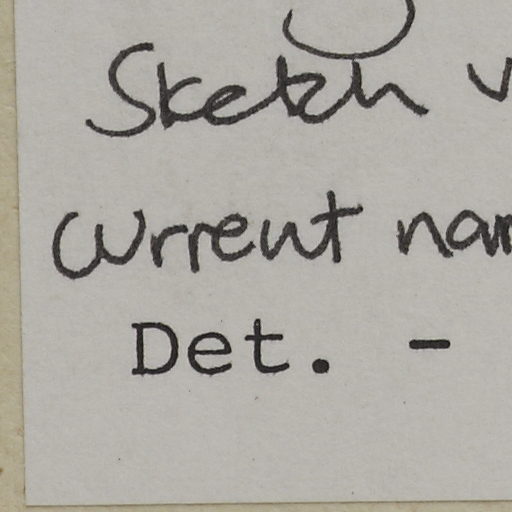 Sketch
Current
Det. -